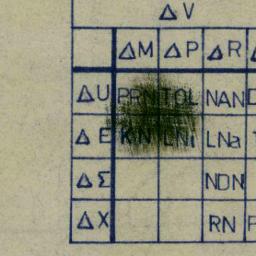 ΔV
ΔM ΔP ΔR
ΔU PRN TOL NAN
ΔE KN LNi LNa
ΔΣ NDN
ΔX RN